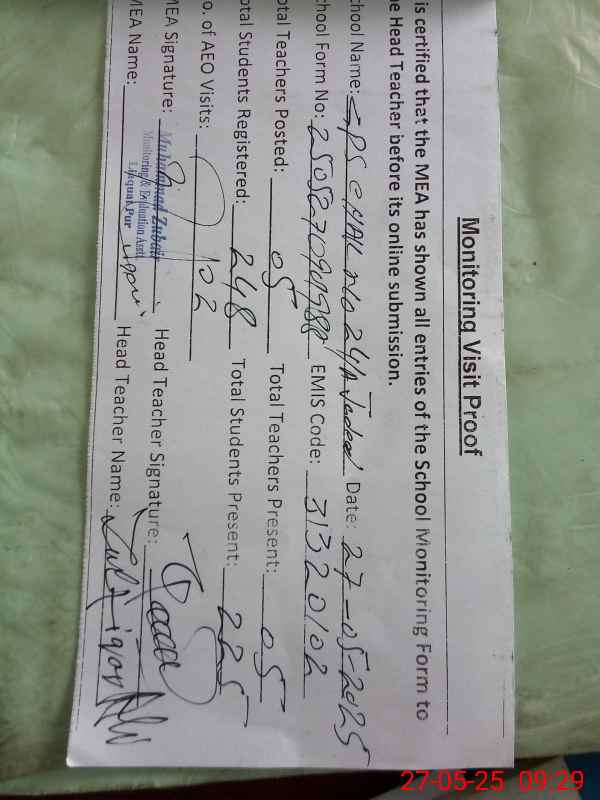 Monitoring Visit Proof
is certified that the MEA has shown all entries of the School Monitoring Form to
e Head Teacher before its online submission.
chool Name: GPS CHAK No 24/A Jadeed Date: 27-05-2025
chool Form No: EMIS Code: 31320102
otal Teachers Posted: 05 Total Teachers Present: 05
otal Students Registered: 248 Total Students Present: 225
o. of AEO Visits: 02
MEA Signature: Head Teacher Signature:
Muhammad Zubair
Monitoring & Evaluation Asstt
Liaquat Pur
MEA Name: Head Teacher Name: Zulfiqar Ali
27-05-25 09:29